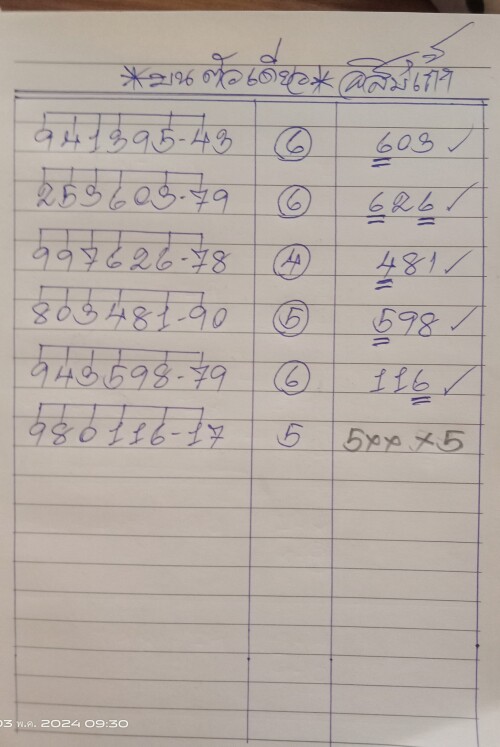 *บน ตัวเดียว*
941395-43 6 603
253603-79 6 626
997626-78 4 481
803481-90 5 598
943598-79 6 116
980116-17 5 5xx x5
03 พ.ค. 2024 09:30